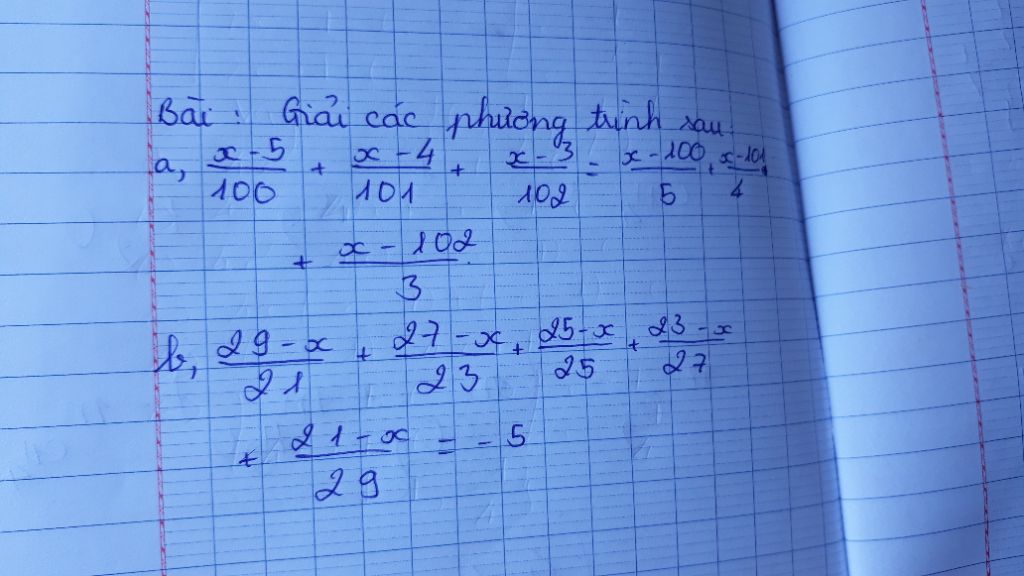 Bài : Giải các phương trình sau.
a, x - 5 / 100 + x - 4 / 101 + x - 3 / 102 = x - 100 / 5 + x - 101 / 4
+ x - 102 / 3
b, 29 - x / 21 + 27 - x / 23 + 25 - x / 25 + 23 - x / 27
+ 21 - x / 29 = - 5